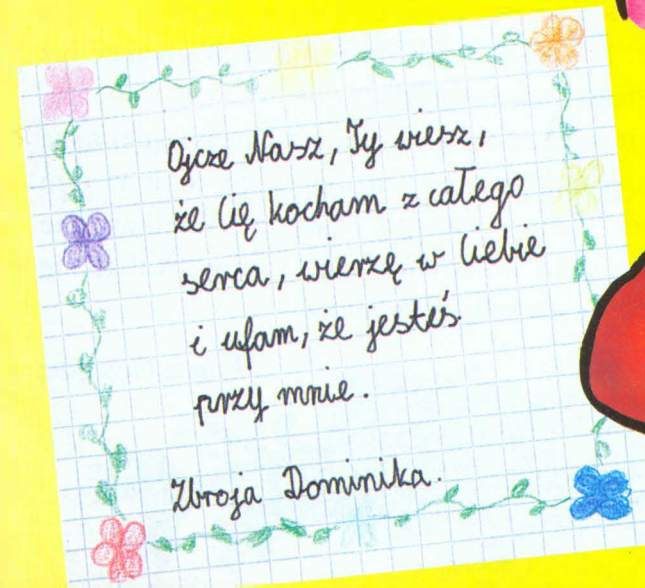 Ojcze Nasz, Ty wiesz,
że Cię kocham z całego
serca, wierzę w Ciebie
i ufam, że jesteś
przy mnie.
Zbroja Dominika.